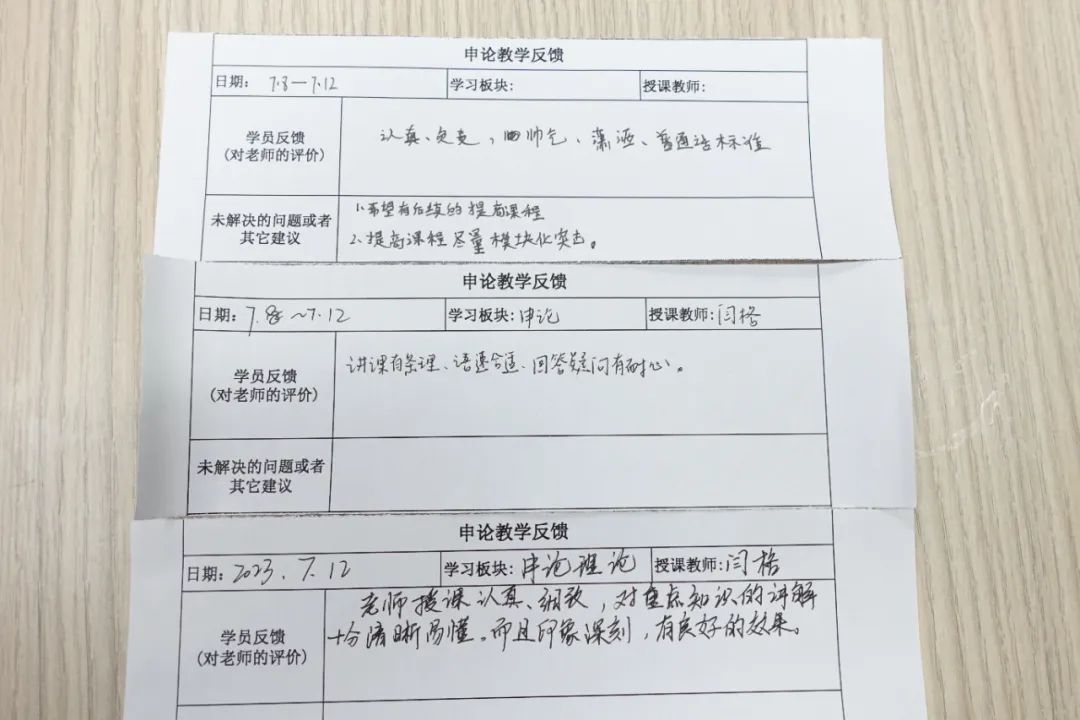 申论教学反馈
日期： 7.8—7.12 学习板块： 授课教师：
学员反馈
(对老师的评价)
认真、负责，帅气、潇洒、普通话标准
未解决的问题或者
其它建议
1.希望有后续的提高课程
2.提高课程尽量模块化突击。
申论教学反馈
日期：7.8～7.12 学习板块：申论 授课教师：闫格
学员反馈
(对老师的评价)
讲课有条理、语速合适、回答疑问有耐心。
未解决的问题或者
其它建议
申论教学反馈
日期：2023.7.12 学习板块：申论理论 授课教师：闫格
学员反馈
(对老师的评价)
老师授课认真、细致，对重点知识的讲解
十分清晰易懂。而且印象深刻，有良好的效果。